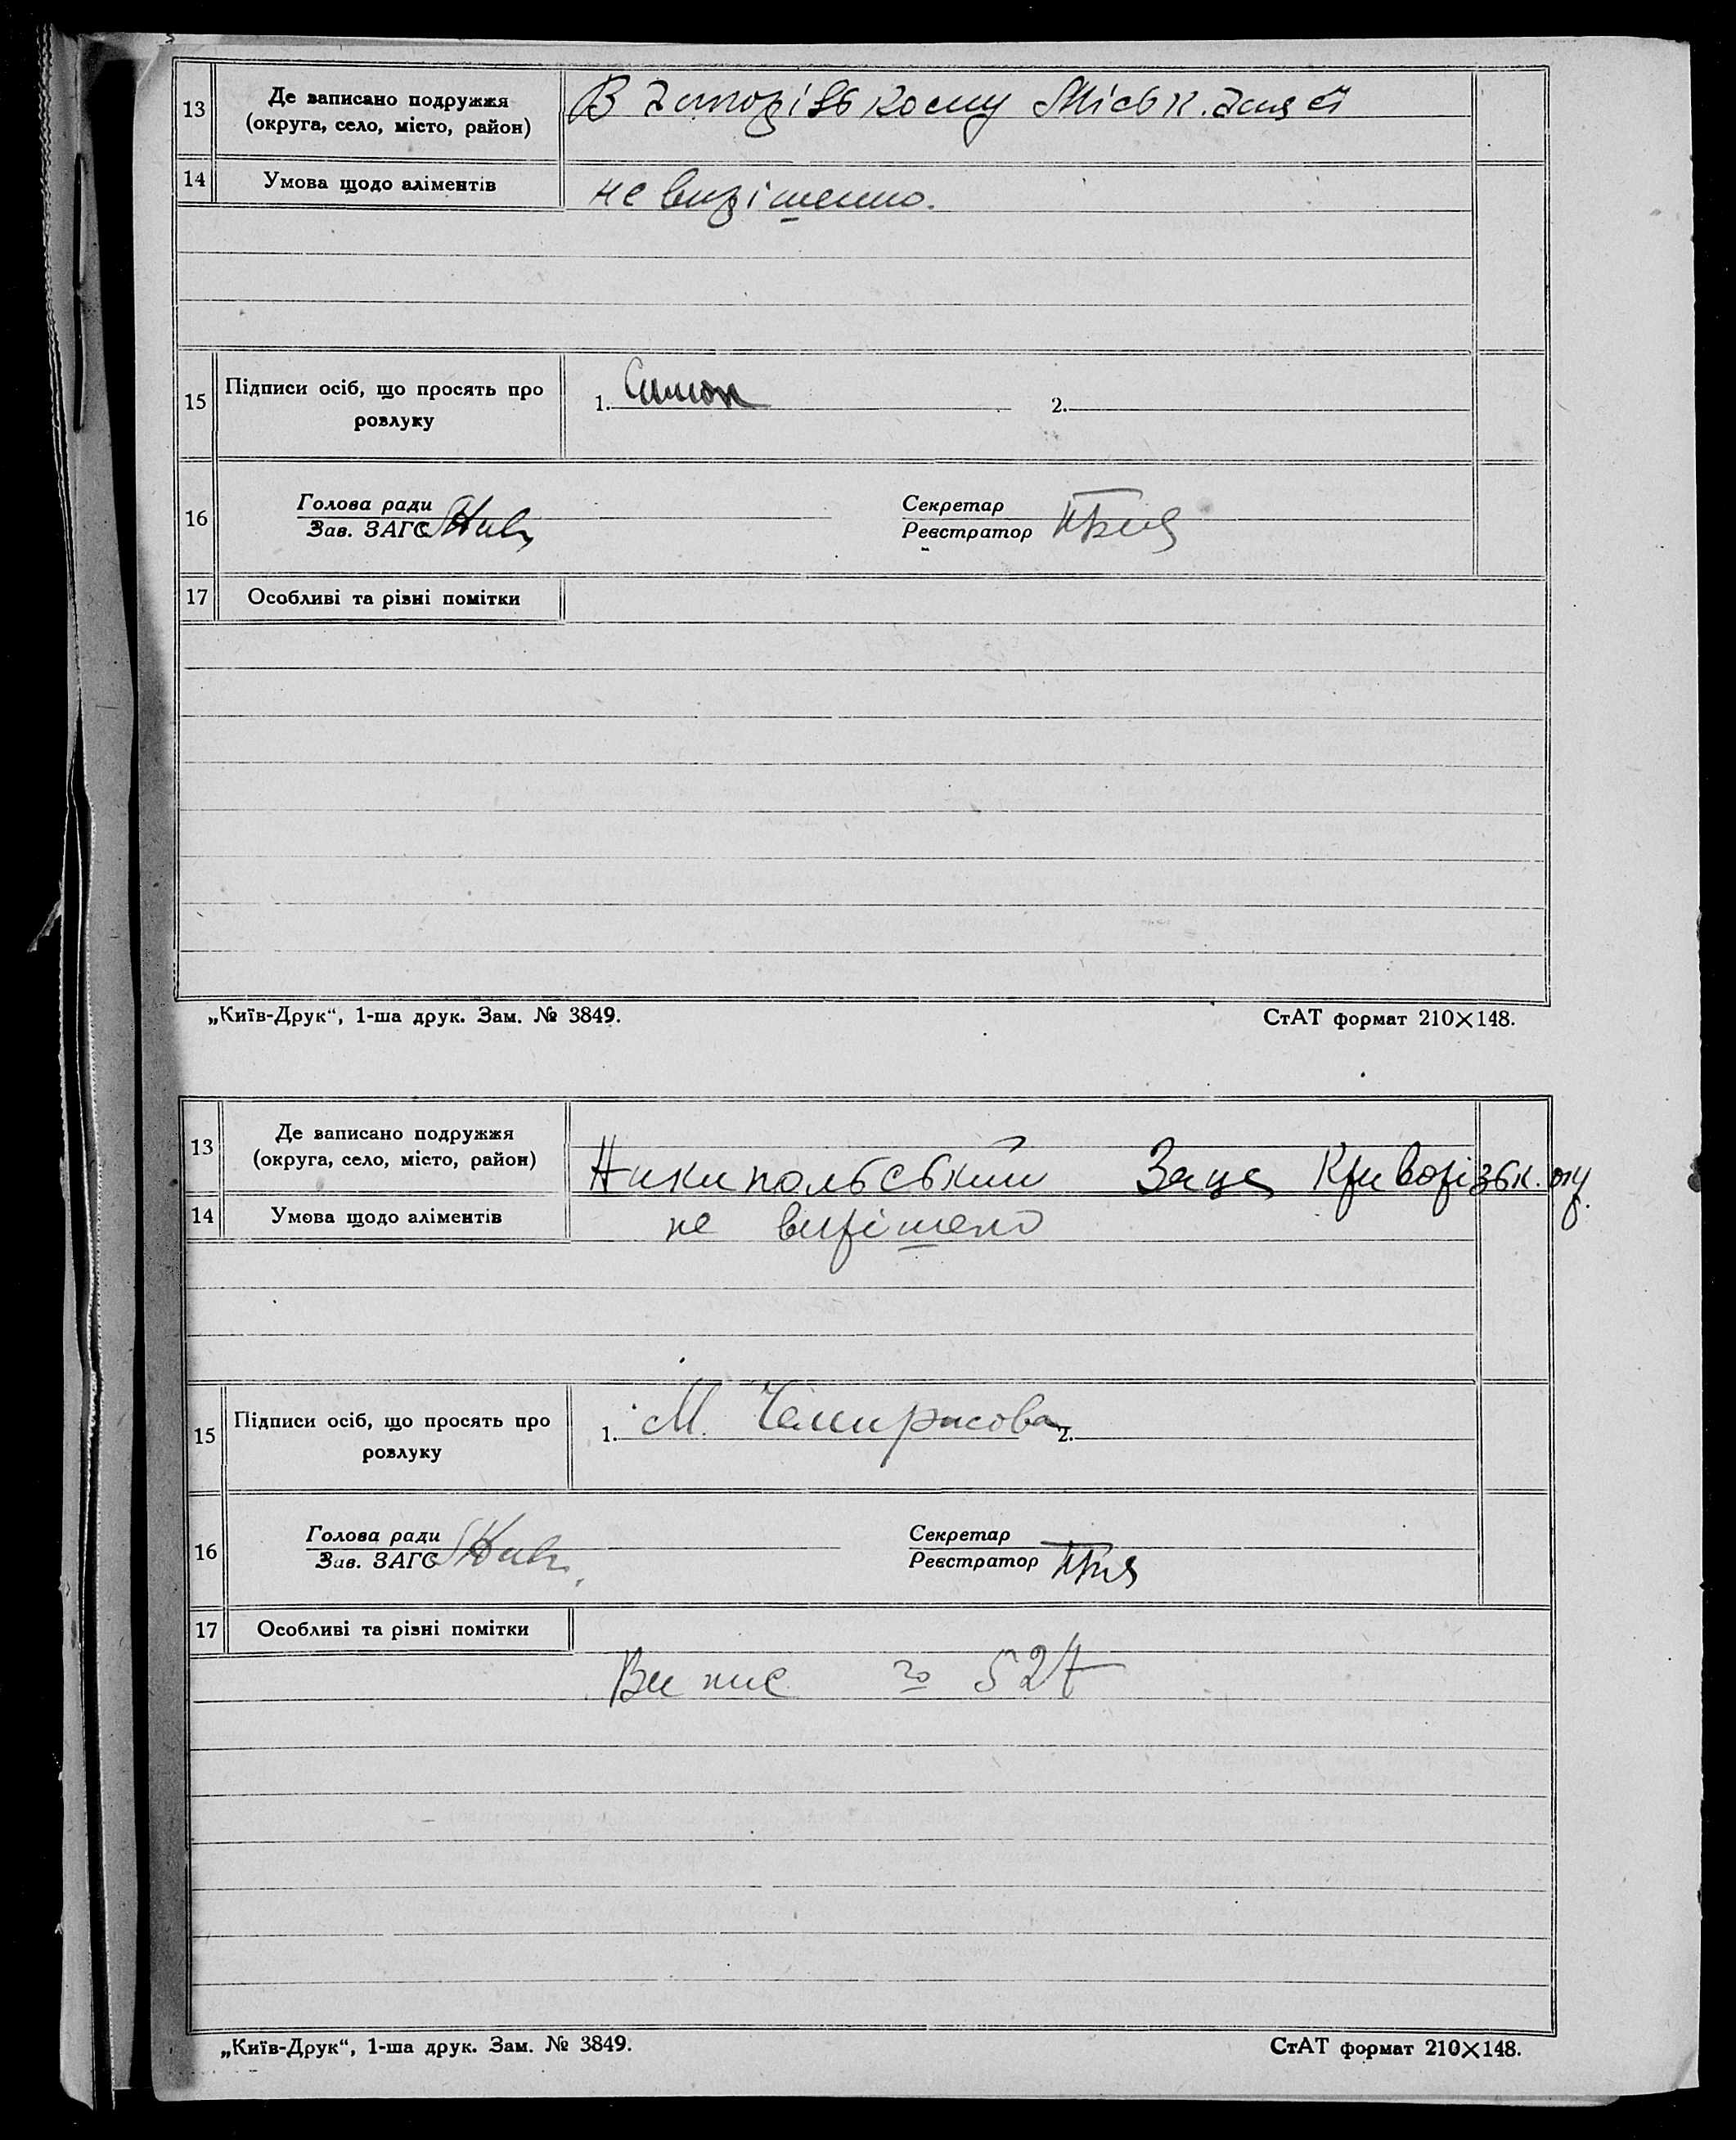 13 Де записано подружжя
(округа, село, місто, район)
В Запорізькому Міськ.
14 Умова щодо аліментів
не вирішенно.
15 Підписи осіб, що просять про
розлуку
1. 2.
16 Голова ради
Зав. ЗАГС
Секретар
Реєстратор
17 Особливі та різні помітки
„Київ-Друк“, 1-ша друк. Зам. № 3849. СтАТ формат 210×148.
13 Де записано подружжя
(округа, село, місто, район)
Никипольський Криворізьк. окр.
14 Умова щодо аліментів
не вирішено
15 Підписи осіб, що просять про
розлуку
1. М. 2.
16 Голова ради
Зав. ЗАГС
Секретар
Реєстратор
17 Особливі та різні помітки
Випис 527
„Київ-Друк“, 1-ша друк. Зам. № 3849. СтАТ формат 210×148.